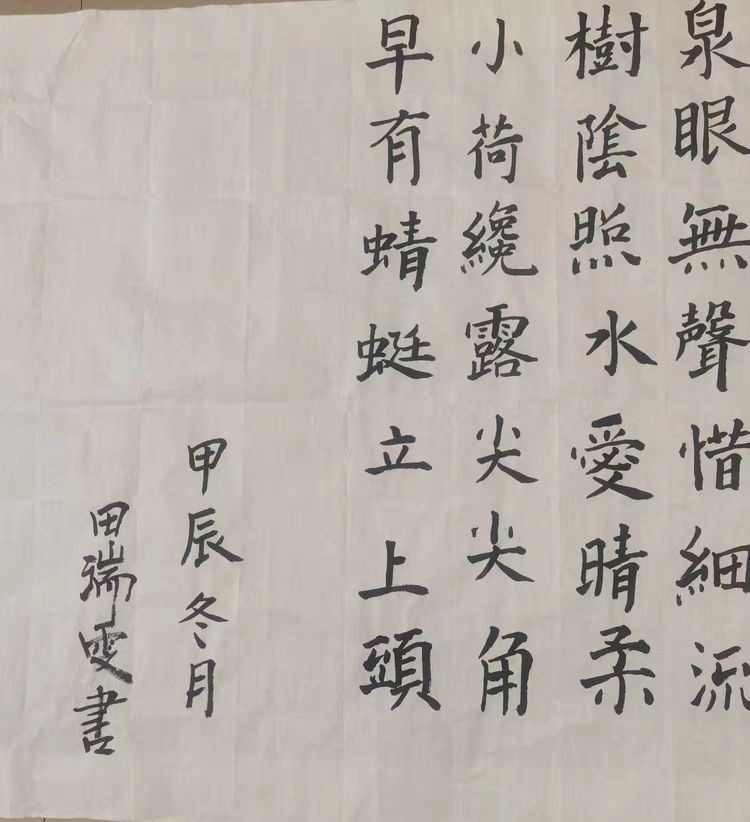 泉眼無聲惜細流
樹陰照水愛晴柔
小荷纔露尖尖角
早有蜻蜓立上頭
甲辰冬月
田瑞雯書